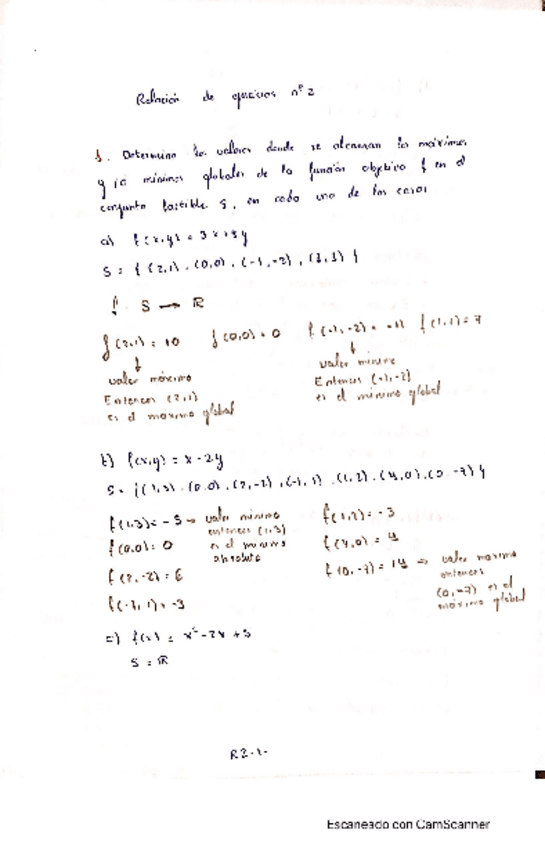 Relación de ejercicios nº 2
1. Determina los valores donde se alcanzan los máximos
y/o mínimos globales de la función objetivo f en el
conjunto factible S, en cada uno de los casos
a) f(x,y) = 3x+4y
S = { (2,1), (0,0), (-1,-2), (1,1) }
f: S → ℝ
f(2,1) = 10 f(0,0) = 0 f(-1,-2) = -11 f(1,1) = 7
↓ ↓
valor máximo valor mínimo
Entonces (2,1) Entonces (-1,-2)
es el máximo global es el mínimo global
b) f(x,y) = x-2y
S = { (1,3), (0,0), (2,-2), (-1,1), (1,2), (4,0), (0,-7) }
f(1,3) = -5 → valor mínimo f(1,2) = -3
entonces (1,3)
f(0,0) = 0 es el mínimo f(4,0) = 4
absoluto
f(2,-2) = 6 f(0,-7) = 14 → valor máximo
entonces
f(-1,1) = -3 (0,-7) es el
máximo global
c) f(x) = x²-2x+5
S = ℝ
R2-1-
Escaneado con CamScanner